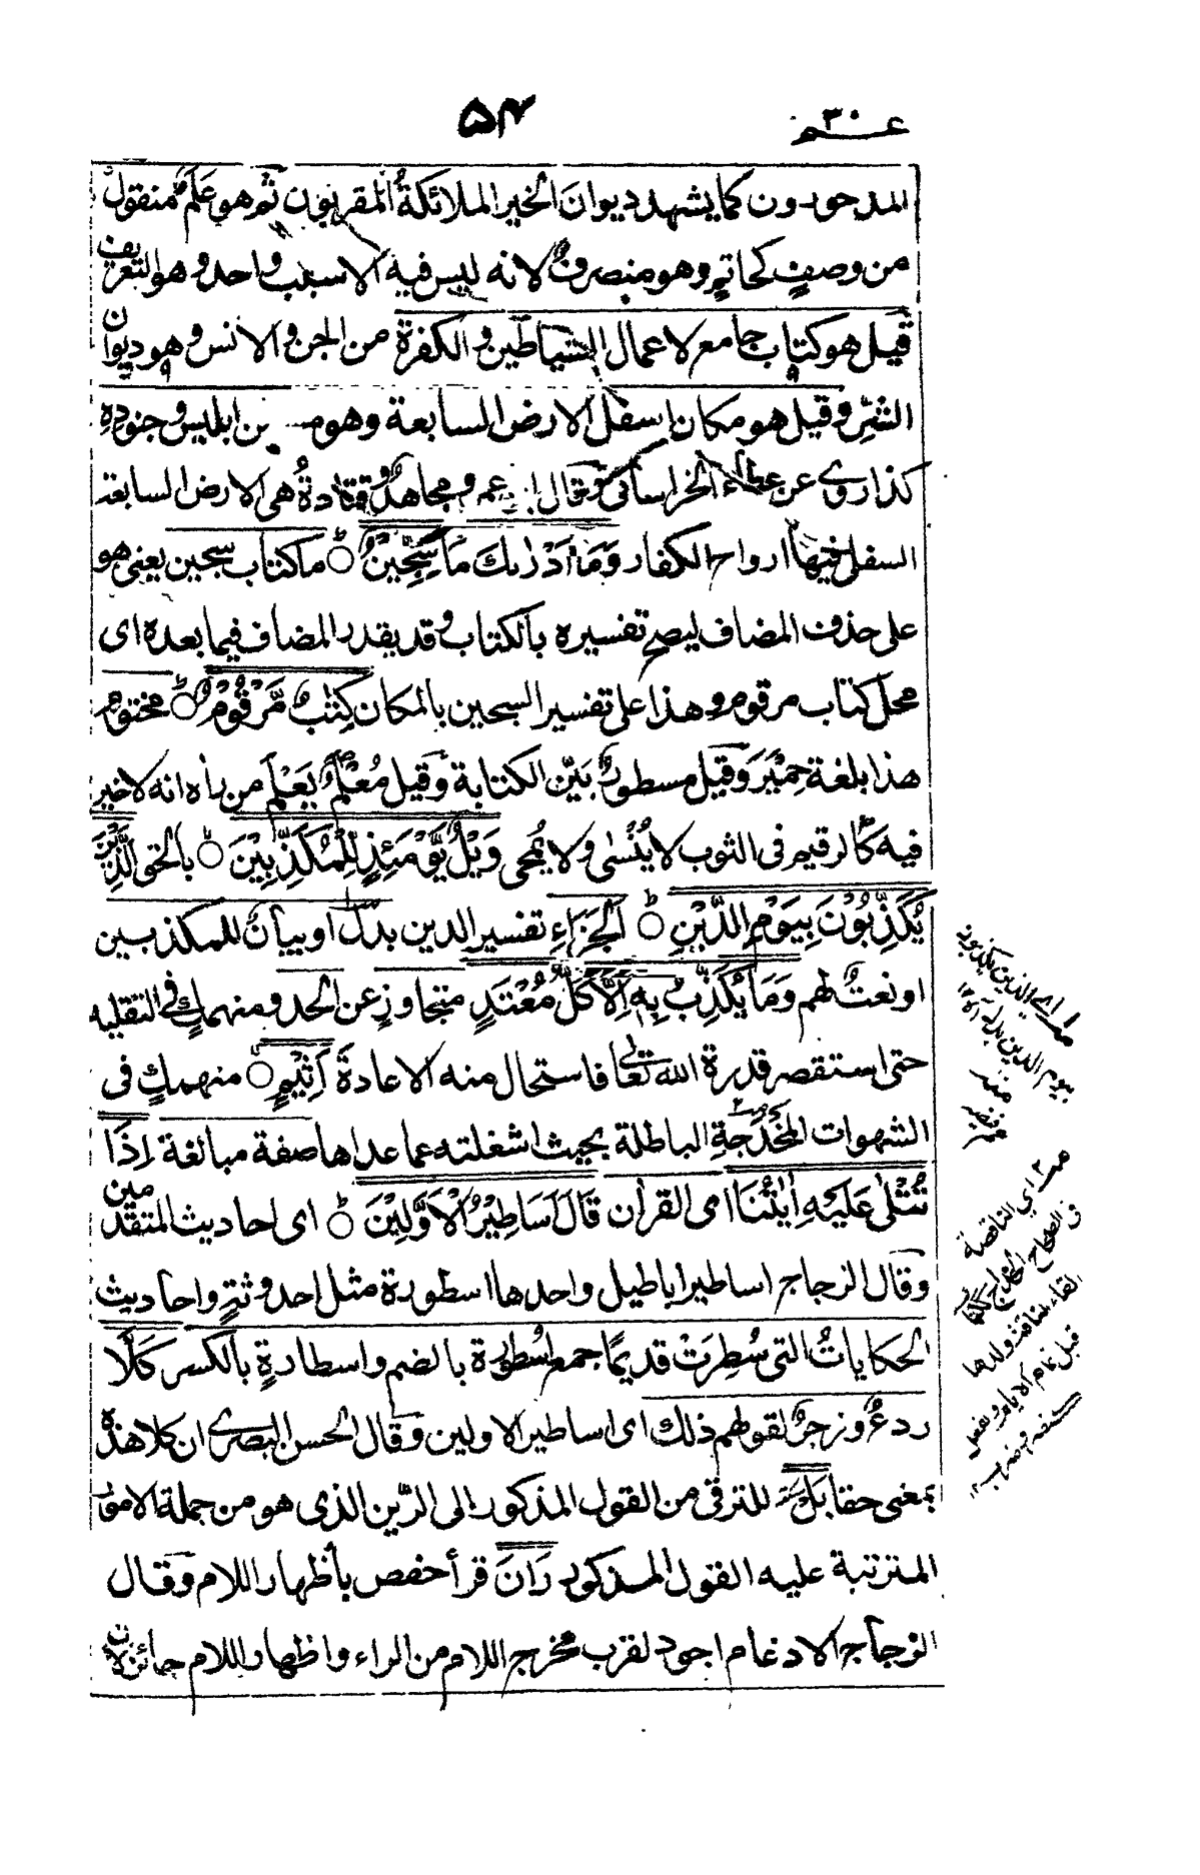 عـــم ٣٠
٥٤
المدحورون كما يشهد ديوان الخير الملائكةُ المقربون ثم هو عَلَمٌ منقول
من وصفٍ كحاتمٍ وهو منصرفٌ لانه ليس فيه الا سبب واحد وهو التعريف
قيل هو كتاب جامع لاعمال الشياطين والكفرة من الجن والانس وهو ديوان
الشرِّ وقيل هو مكان اسفل الارض السابعة وهو ابليس وجنودهِ
كذا روي عن عطاء الخراساني وقال ومجاهدٌ وقتادةُ هى الارض السابعة
السفلى فيها ارواح الكفار وَمَآ اَدْرٰىكَ مَا سِجِّيْنٌ ○ ما كتاب سجين يعنى هو
على حذف المضاف ليصح تفسيره بالكتاب وقد يقدر المضاف فيما بعده اى
محل كتاب مرقوم وهذا على تفسير السجين بالمكان كِتٰبٌ مَّرْقُوْمٌ ○ مختوم
هذا بلغة حِمْيَرَ وقيل مسطورٌ بَيّن الكتابة وقيل مُعْلَمٌ يَعْلَم من رأه انه لا خير
فيه كالرقيم فى الثوب لا يُنْسٰى ولا يُمحى وَيْلٌ يَّوْمَئِذٍ لِّلْمُكَذِّبِيْنَ ○ بالحق الَّذِيْنَ
يُكَذِّبُوْنَ بِيَوْمِ الدِّيْنِ ○ الجَزَاءِ تفسير الدين بدلٌ او بيانٌ للمكذبين
او نعتٌ لهم وَمَا يُكَذِّبُ بِهٖ اِلَّا كُلُّ مُعْتَدٍ متجاوزٍ عن الحد ومنهمكٍ فى التقليد
حتى استقصر قدرة الله تعالى فاستحال منه الاعادةَ اَثِيْمٍ ○ منهمكٍ فى
الشهوات المُخْدَجةِ الباطلة بحيث اشغلته عما عداها صفة مبالغة اِذَا
تُتْلٰى عَلَيْهِ اٰيٰتُنَا اى القرأن قَالَ اَسَاطِيْرُ الْاَوَّلِيْنَ ○ اى احاديث المتقدمين
وقال الزجاج اساطير اباطيل واحدها اسطورة مثل احدوثةٍ واحاديث
الحكاياتُ التى سُطِرَتْ قديمًا جمع اُسْطورة بالضم واسطارةٍ بالكسر كَلَّا
ردعٌ وزجرٌ لقولهم ذلك اى اساطير الاولين وقال الحسن البصرى ان كلا هذه
بمعنى حقا بَلْ للترقى من القول المذكور الى الرَّين الذى هو من جملة الامور
المترتبة عليه القول المذكور رَانَ قرأ حفص باظهار اللام وقال
الزجاج الادغام اجود لقرب مخرج اللام من الراء واظهار اللام جائز لان
اى الذين يكذبون
بيوم الدين بدل
اي الناقصة
فى الصحاح
قبل تمام الايام